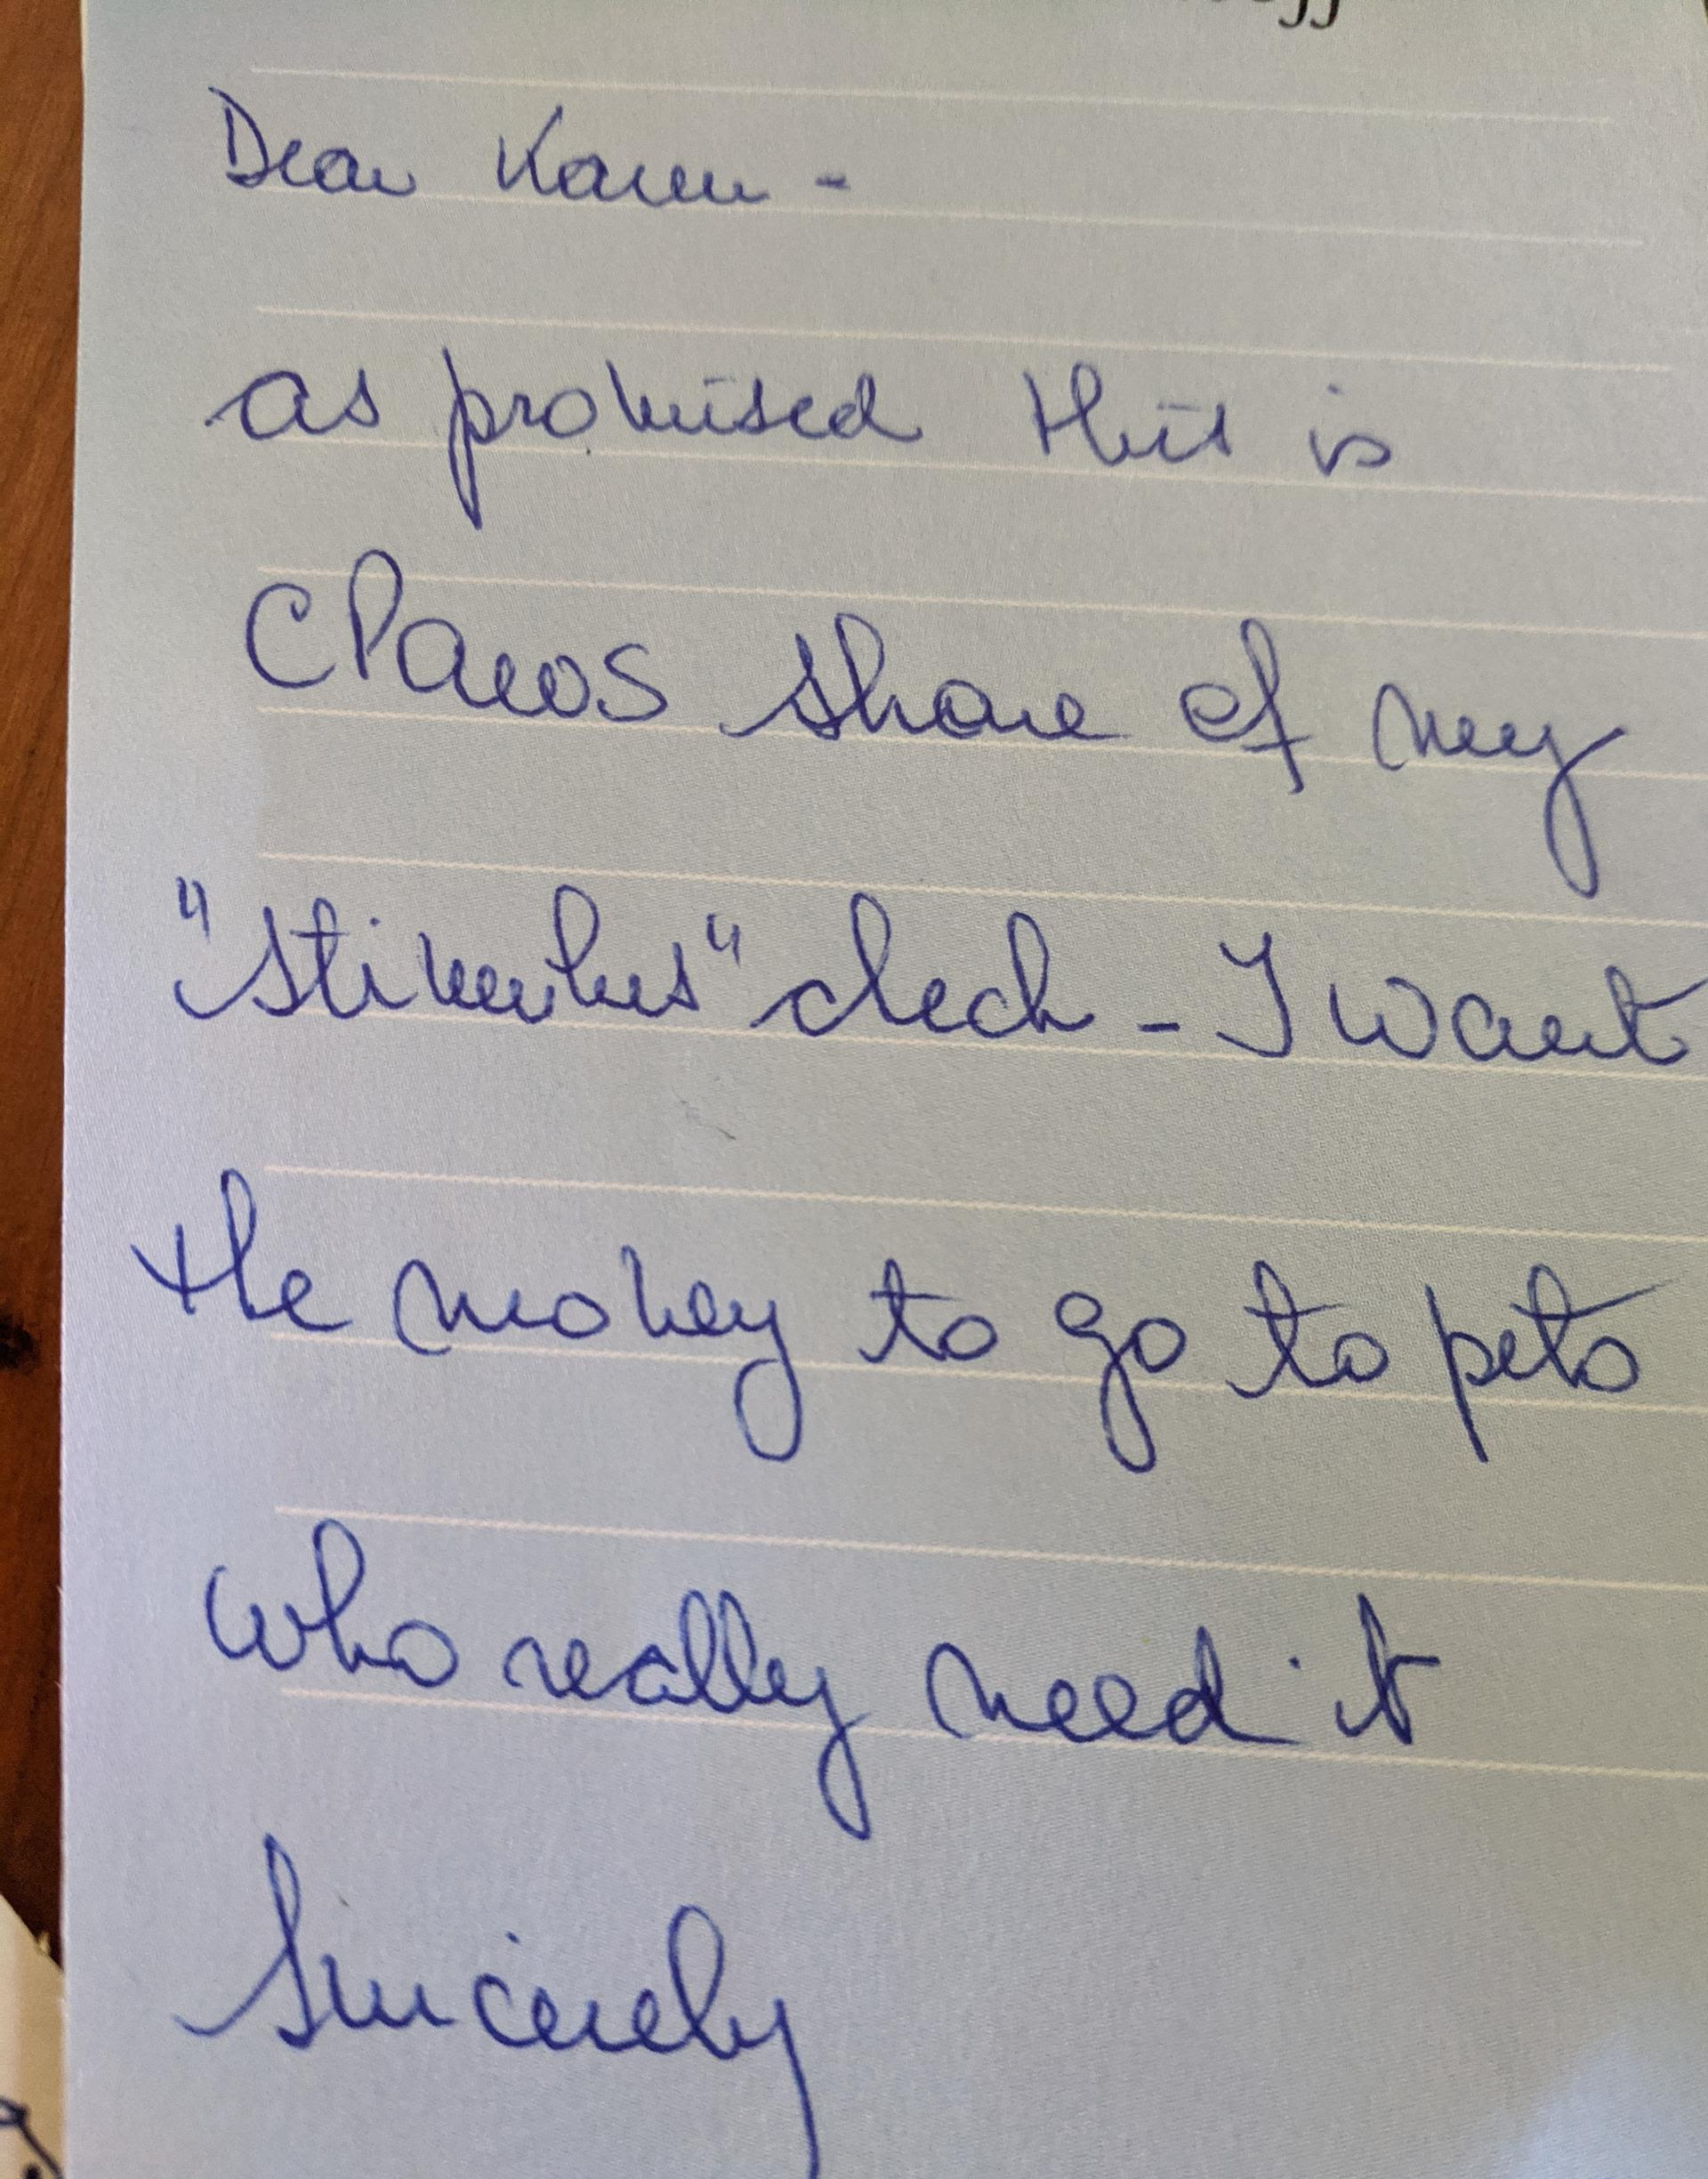 Dear Karen -
as promised this is
CPaws share of my
"stimulus" check - I want
the money to go to pets
who really need it
Sincerely